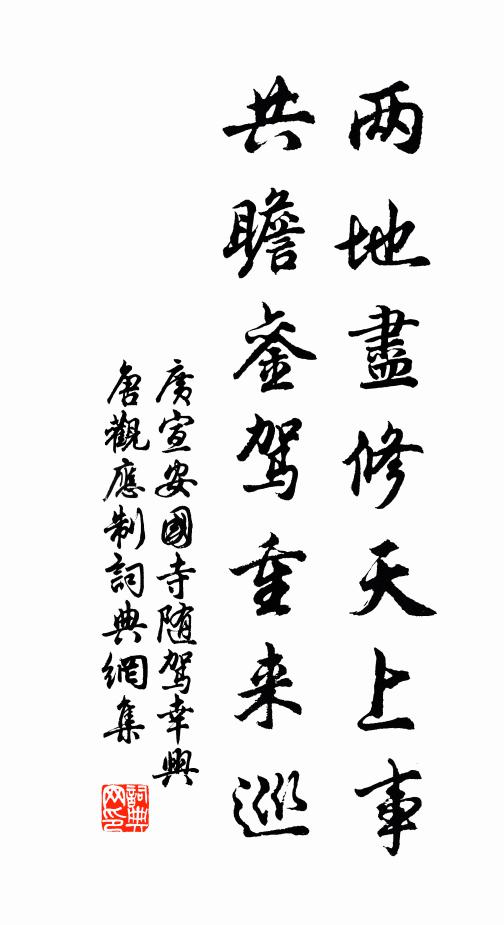 两地盡修天上事
共瞻鑾駕重来巡
廣宣安國寺随駕幸興
唐觀應制詞典網集
詞典网印